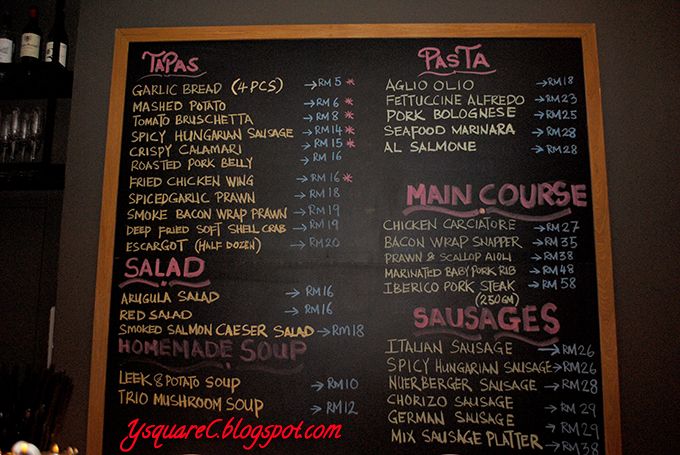 TAPAS
GARLIC BREAD (4 PCS) → RM 5 *
MASHED POTATO → RM 6 *
TOMATO BRUSCHETTA → RM 8 *
SPICY HUNGARIAN SAUSAGE → RM 14 *
CRISPY CALAMARI → RM 15 *
ROASTED PORK BELLY → RM 16
FRIED CHICKEN WING → RM 16 *
SPICED GARLIC PRAWN → RM 18
SMOKE BACON WRAP PRAWN → RM 19
DEEP FRIED SOFT SHELL CRAB → RM 19
ESCARGOT (HALF DOZEN) → RM 20
SALAD
ARUGULA SALAD → RM 16
RED SALAD → RM 16
SMOKED SALMON CAESER SALAD → RM 18
HOMEMADE SOUP
LEEK & POTATO SOUP → RM 10
TRIO MUSHROOM SOUP → RM 12
PASTA
AGLIO OLIO → RM 18
FETTUCCINE ALFREDO → RM 23
PORK BOLOGNESE → RM 25
SEAFOOD MARINARA → RM 28
AL SALMONE → RM 28
MAIN COURSE
CHICKEN CARCIATORE → RM 27
BACON WRAP SNAPPER → RM 35
PRAWN & SCALLOP AIOLI → RM 38
MARINATED BABY PORK RIB → RM 48
IBERICO PORK STEAK → RM 58
(250GM)
SAUSAGES
ITALIAN SAUSAGE → RM 26
SPICY HUNGARIAN SAUSAGE → RM 26
NUERBERGER SAUSAGE → RM 28
CHORIZO SAUSAGE → RM 29
GERMAN SAUSAGE → RM 29
MIX SAUSAGE PLATTER → RM 38
YsquareC.blogspot.com